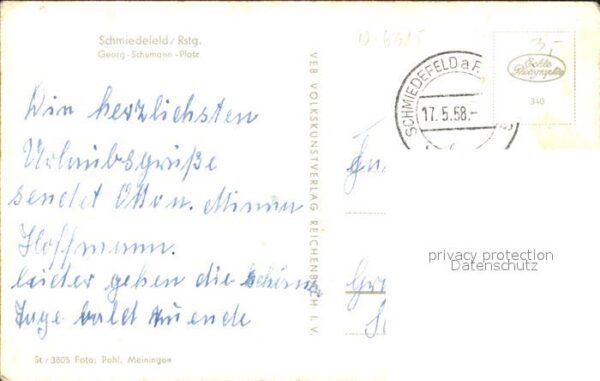 Schmiedefeld / Rstg.
Georg-Schumann-Platz
Die herzlichsten
Urlaubsgrüße
sendet Otto u. Minna
Hoffmann.
leider gehen die schönen
Tage bald zu ende
St / 3805 Foto: Pohl, Meiningen
VEB VOLKSKUNSTVERLAG REICHENBACH I. V.
SCHMIEDEFELD a. R.
17.5.58.-
3,-
Echte
Photographie
340
privacy protection
Datenschutz